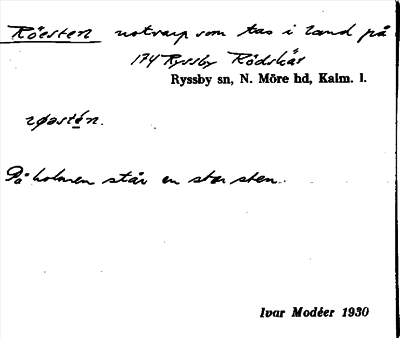 Röesten notvarp som tas i land på
174 Ryssby Rödskär
Ryssby sn, N. Möre hd, Kalm. l.
røəstén.
På holmen står en stor sten.
Ivar Modéer 1930